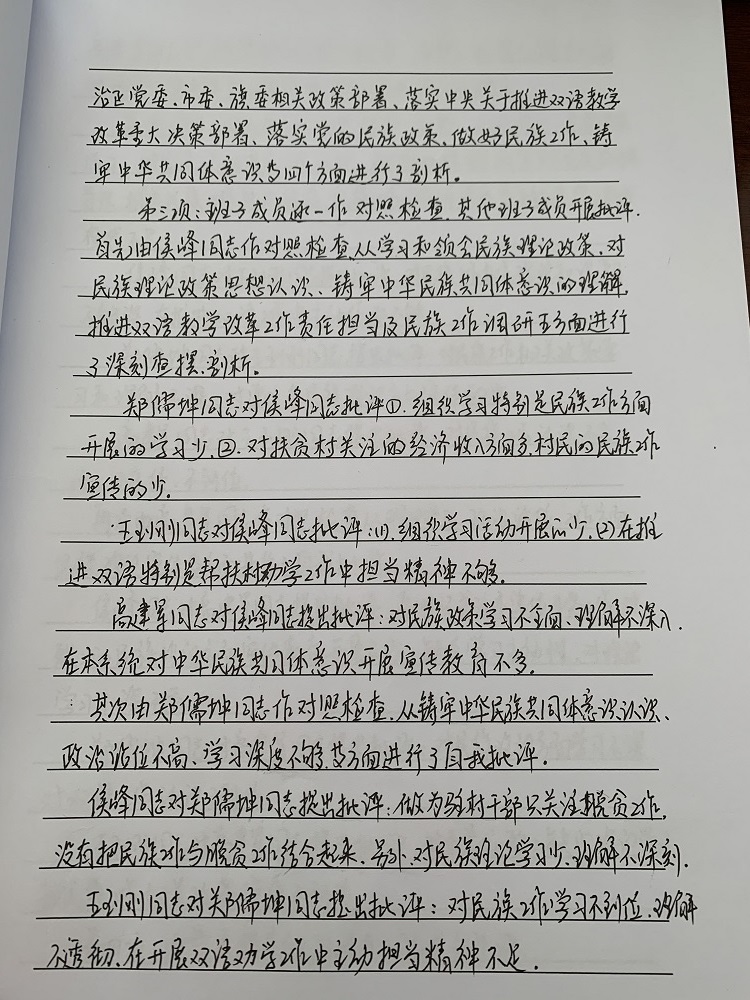 治区党委、市委、旗委相关政策部署、落实中央关于推进双语教学
改革重大决策部署、落实党的民族政策、做好民族工作、铸
牢中华共同体意识等四个方面进行了剖析。
第三项:班子成员逐一作对照检查,其他班子成员开展批评.
首先由侯峰同志作对照检查,从学习和领会民族理论政策、对
民族理论政策思想认识、铸牢中华民族共同体意识的理解,
推进双语教学改革工作责任担当及民族工作调研五方面进行
了深刻查摆剖析。
郑儒坤同志对侯峰同志批评①.组织学习特别是民族工作方面
开展的学习少.②.对扶贫村关注的经济收入方面多,村民的民族工作
宣传的少.
王玉刚同志对侯峰同志批评:(1).组织学习活动开展的少.(2)在推
进双语特别是帮扶村劝学工作中担当精神不够.
高建军同志对侯峰同志提出批评:对民族政策学习不全面、理解不深入.
在本系统对中华民族共同体意识开展宣传教育不多.
其次由郑儒坤同志作对照检查,从铸牢中华民族共同体意识认识、
政治站位不高、学习深度不够等方面进行了自我批评.
侯峰同志对郑儒坤同志提出批评:做为驻村干部只关注脱贫工作,
没有把民族工作与脱贫工作结合起来.另外,对民族理论学习少,理解不深刻.
王玉刚同志对郑儒坤同志提出批评:对民族工作学习不到位,理解
不透彻、在开展双语劝学工作中主动担当精神不足.